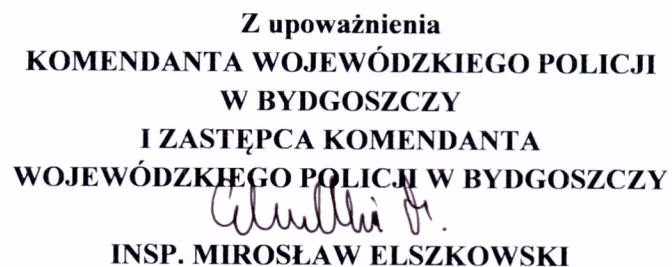 Z upoważnienia
KOMENDANTA WOJEWÓDZKIEGO POLICJI
W BYDGOSZCZY
I ZASTĘPCA KOMENDANTA
WOJEWÓDZKIEGO POLICJI W BYDGOSZCZY
INSP. MIROSŁAW ELSZKOWSKI